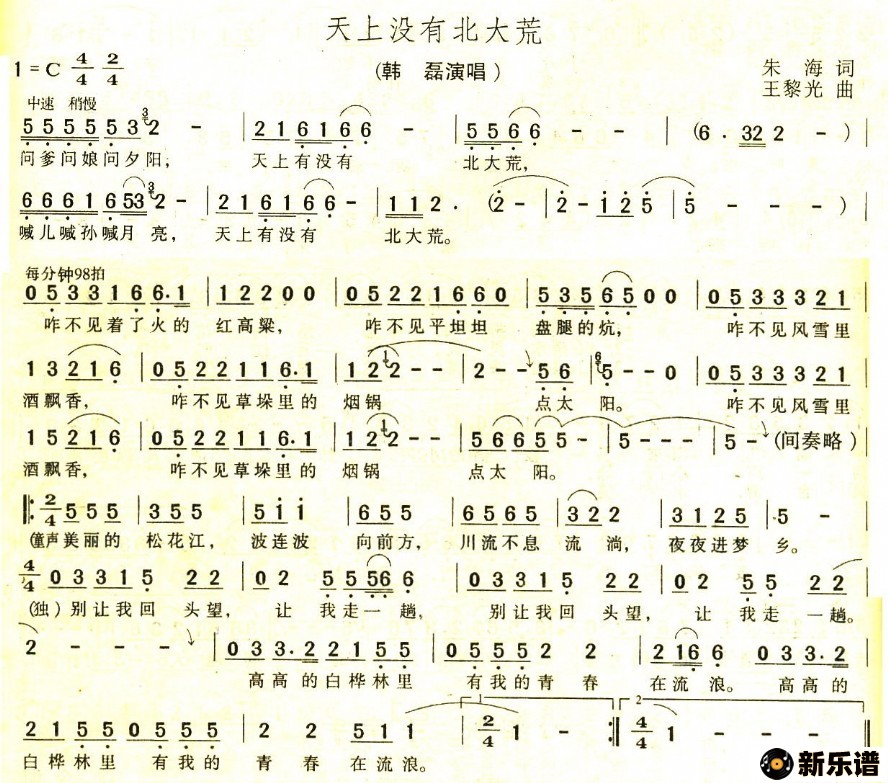 天上没有北大荒
1=C 4/4 2/4
(韩 磊演唱)
朱 海 词
王黎光 曲
中速 稍慢
5 5 5 5 5 3 2 - | 2 1 6 1 6 6 6 - | 5 5 6 6 - - | (6 · 3 2 2 - - )
问爹问娘问夕阳, 天上有没有 北大荒,
6 6 6 1 6 5 3 2 - | 2 1 6 1 6 6 6 - | 1 1 2 · (2 - | 2 - · i 2 5 | 5 - - - )
喊儿喊孙喊月 亮, 天上有没有 北大荒。
每分钟98拍
0 5 3 3 1 6 6 · 1 | 1 2 2 0 0 | 0 5 2 2 1 6 6 0 | 5 3 5 6 5 0 0 | 0 5 3 3 3 2 1
咋不见着了火的 红高粱, 咋不见平坦坦 盘腿的炕, 咋不见风雪里
1 3 2 1 6 | 0 5 2 2 1 1 6 · 1 | 1 2 2 - - | 2 - - 5 6 | 5 - - 0 | 0 5 3 3 3 2 1
酒飘香, 咋不见草垛里的 烟锅 点太 阳。 咋不见风雪里
1 5 2 1 6 | 0 5 2 2 1 1 6 · 1 | 1 2 2 - - | 5 6 6 5 5 - | 5 - - - | 5 - (间奏略)
酒飘香, 咋不见草垛里的 烟锅 点太 阳。
2/4 5 5 5 | 3 5 5 | 5 i i | 6 5 5 | 6 5 6 5 | 3 2 2 | 3 1 2 5 | · 5 -
(童声)美丽的 松花江, 波连波 向前方, 川流不息 流淌, 夜夜进梦 乡。
4/4 0 3 3 1 5 2 2 | 0 2 5 5 5 6 6 | 0 3 3 1 5 2 2 | 0 2 5 5 2 2
(独)别让我回 头望, 让 我走一趟, 别让我回 头望, 让 我走 一趟。
2 - - - | 0 3 3 · 2 2 1 5 5 | 0 5 5 5 2 2 | 2 1 6 6 0 3 3 · 2
高高的白桦林里 有我的青 春 在流浪。 高高的
2 1 5 5 0 5 5 5 | 2 2 5 1 1 | 2/4 1 - :‖ 4/4 1 - - -
1
2
白桦林里 有我的 青 春 在流浪。
新乐谱